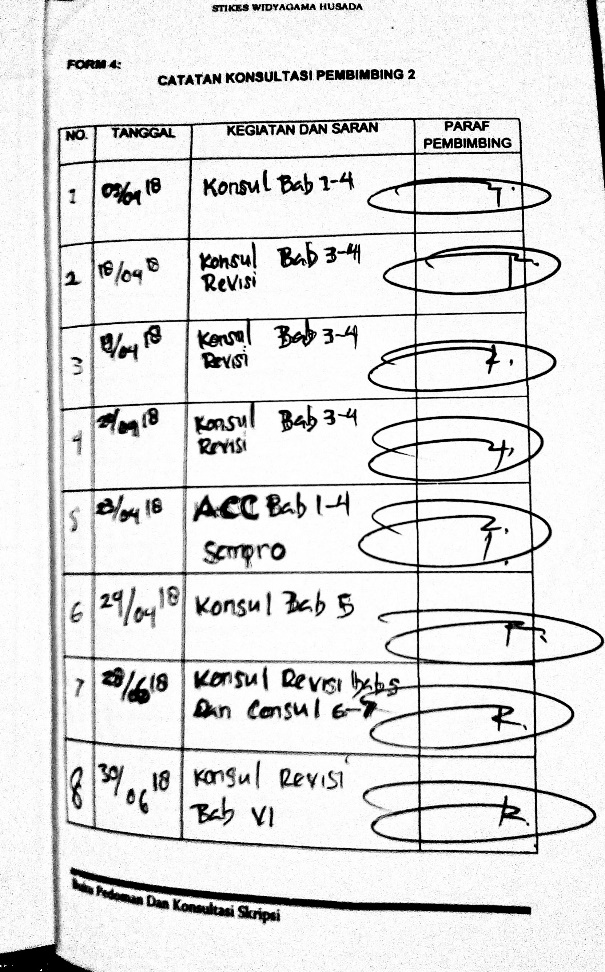 STIKES WIDYAGAMA HUSADA
FORM 4:
CATATAN KONSULTASI PEMBIMBING 2
NO. TANGGAL KEGIATAN DAN SARAN PARAF PEMBIMBING
1 18 Konsul Bab 1-4
2 18/04 18 Konsul Bab 3-4
Revisi
3 19/04 18 Konsul Bab 3-4
Revisi
4 18 Konsul Bab 3-4
Revisi
5 23/04 18 ACC Bab 1-4
Sempro
6 29/04 18 Konsul Bab 5
7 18 Konsul Revisi bab 5
Dan Consul 6-7
8 30/06 18 Konsul Revisi
Bab VI
Buku Pedoman Dan Konsultasi Skripsi